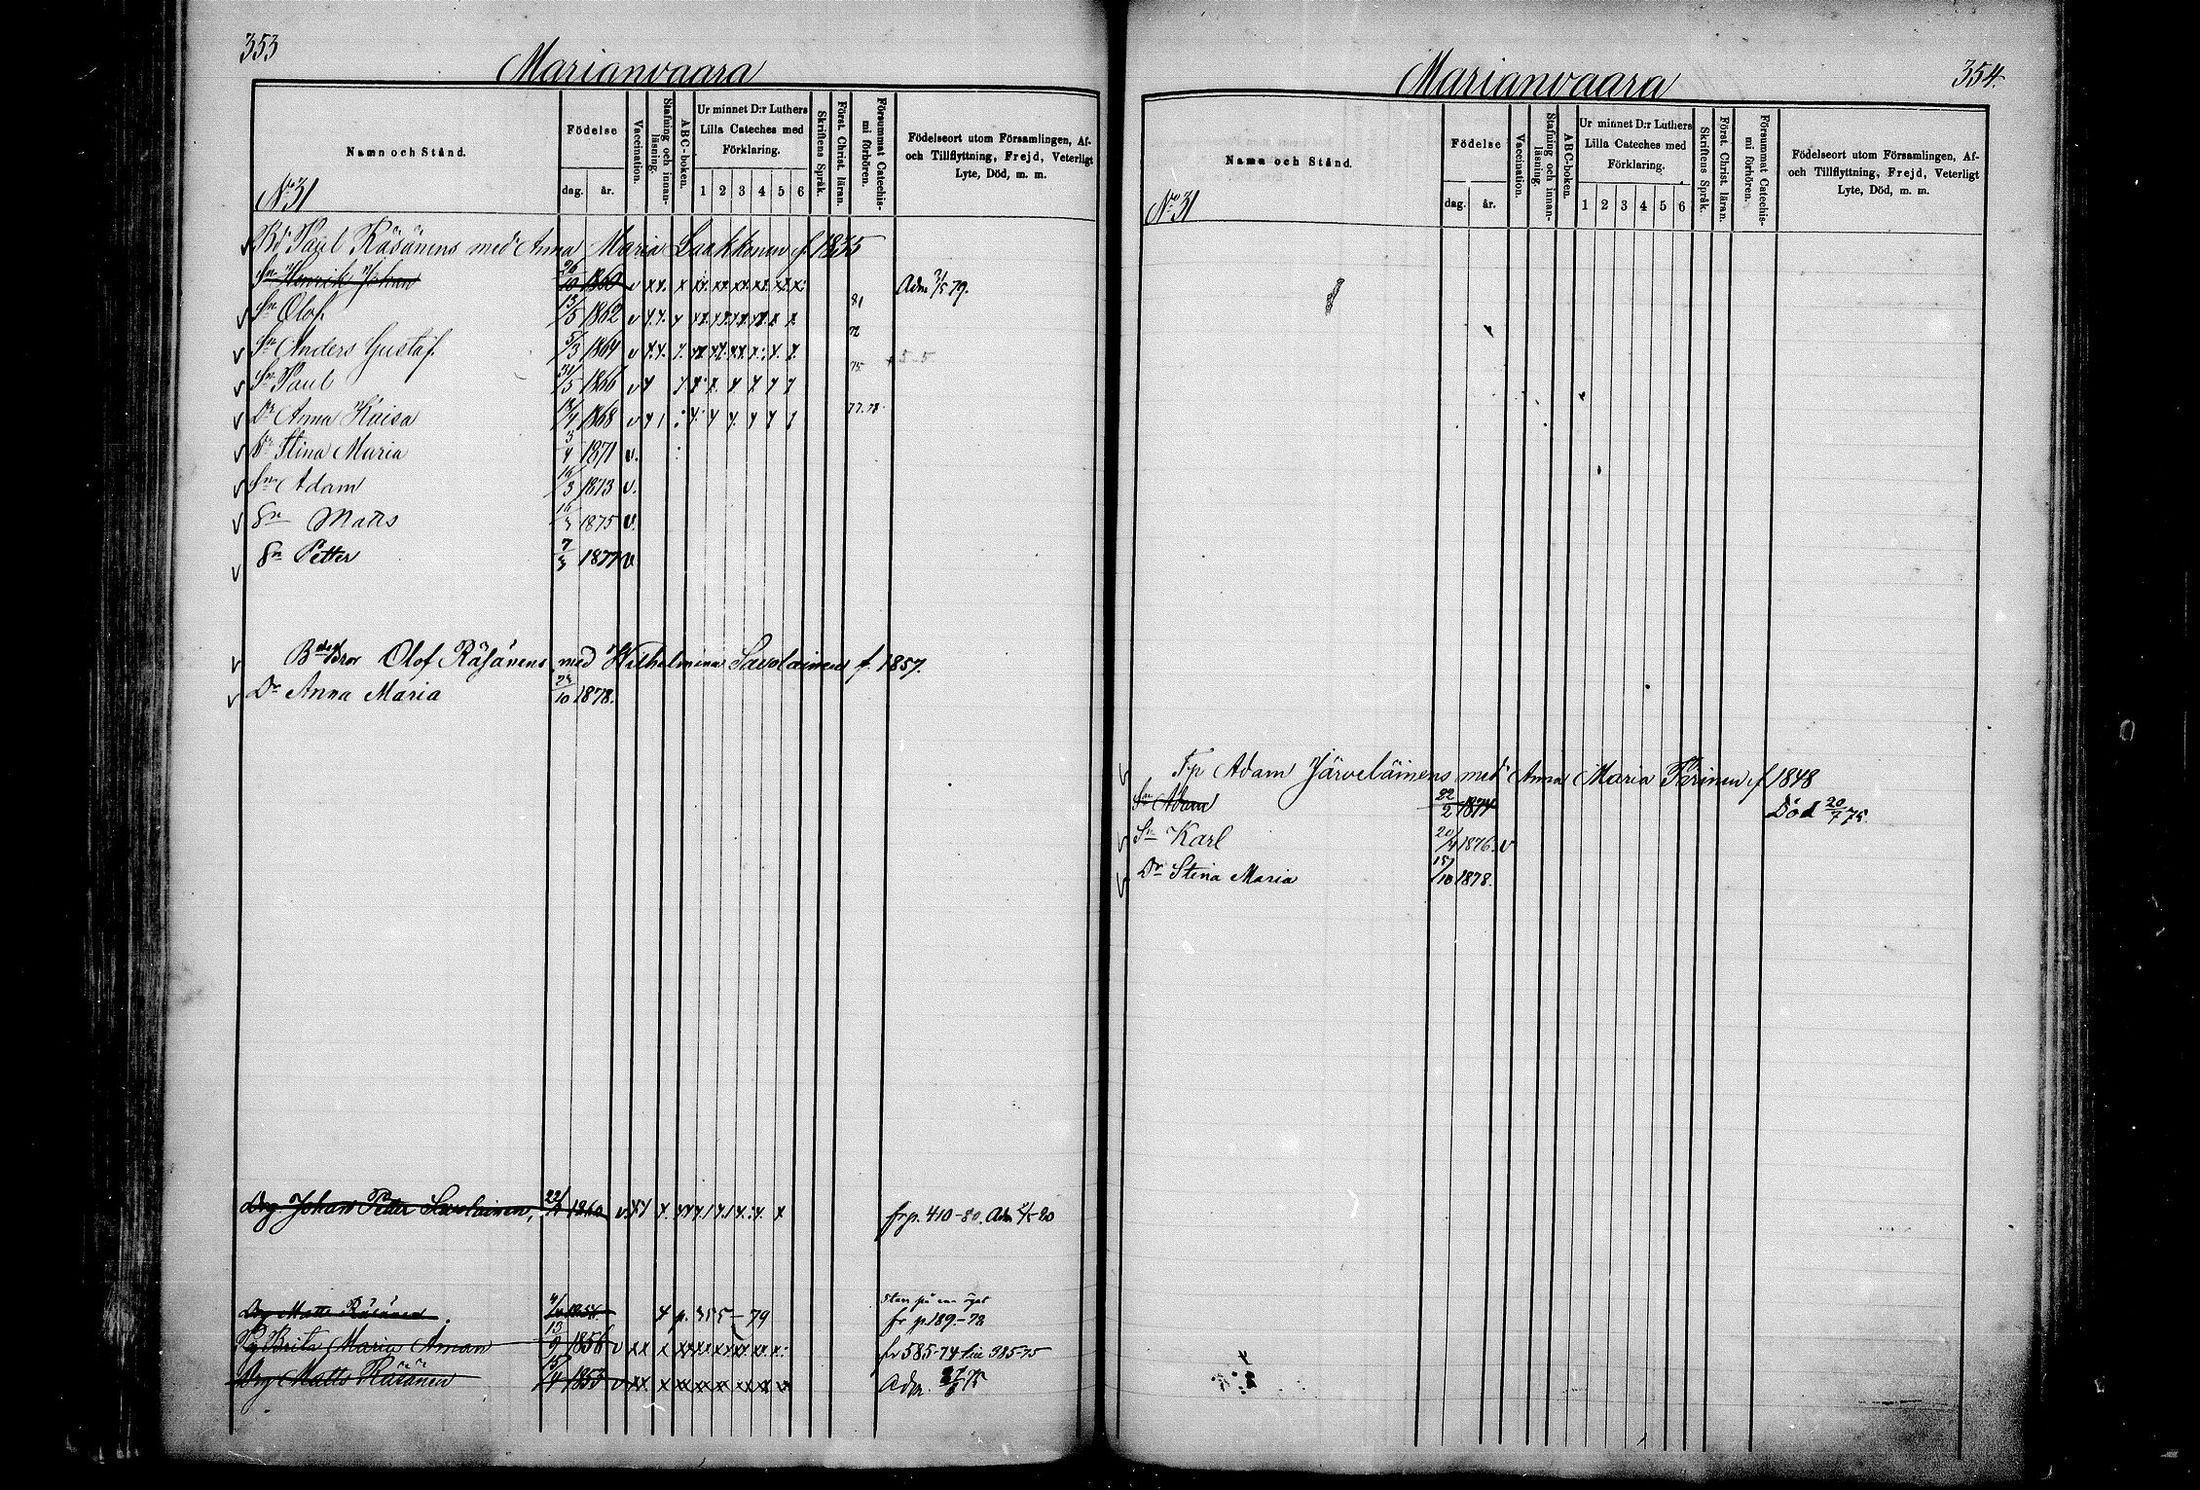 353
Marianvaara
Namn och Stånd.
Födelse
dag.
år.
Vaccination.
Stafning och innan-
läsning.
ABC-boken.
Ur minnet D:r Luthers
Lilla Cateches med
Förklaring.
1 2 3 4 5 6
Skriftens Språk.
Först. Christ. läran.
Försummat Catechis-
mi förhören.
Födelseort utom Församlingen, Af-
och Tillflyttning, Frejd, Veterligt
Lyte, Död, m. m.
No 31
Bd Paul Räsänens med Anna Maria Laakkonen f. 1835
Sn Henrik Johan 26/10 1860 v x x. x x x x x x x Adm 3/5 79.
Sn Olof 13/5 1862 v 81
Sn Anders Gustaf 5/3 1864 v 72
Sn Paul 24/5 1866 v 75
Dr Anna Kaisa 12/4 1868 v 77.78.
Dr Stina Maria 3/4 1871 v.
Sn Adam 16/3 1873 v.
Sn Matts 16/3 1875 v.
Sn Petter 7/3 1877 v
Bror Olof Räsänens med Wilhelmina Savolainen f. 1857.
Dr Anna Maria 1878.
Drg Johan Petter Savolainen, 1860 v frp. 410-80. Adm 80
Drg Matts Räsänen p. 355-79 fr p 189-78
Pg Brita Maria Aman 13/9 1856 v fr 585-74 till 385-75
Drg Matts Räsänen 15/4 1853 v Adm. 75
354.
Marianvaara
Namn och Stånd.
Födelse
dag.
år.
Vaccination.
Stafning och innan-
läsning.
ABC-boken.
Ur minnet D:r Luthers
Lilla Cateches med
Förklaring.
1 2 3 4 5 6
Skriftens Språk.
Först. Christ. läran.
Försummat Catechis-
mi förhören.
Födelseort utom Församlingen, Af-
och Tillflyttning, Frejd, Veterligt
Lyte, Död, m. m.
No 31
Tp Adam Järveläinens med Anna Maria Törinen f 1848
Sn Adam 22/2 1874 Död 20/7 75.
Sn Karl 20/4 1876. v
Dr Stina Maria 15/10 1878.